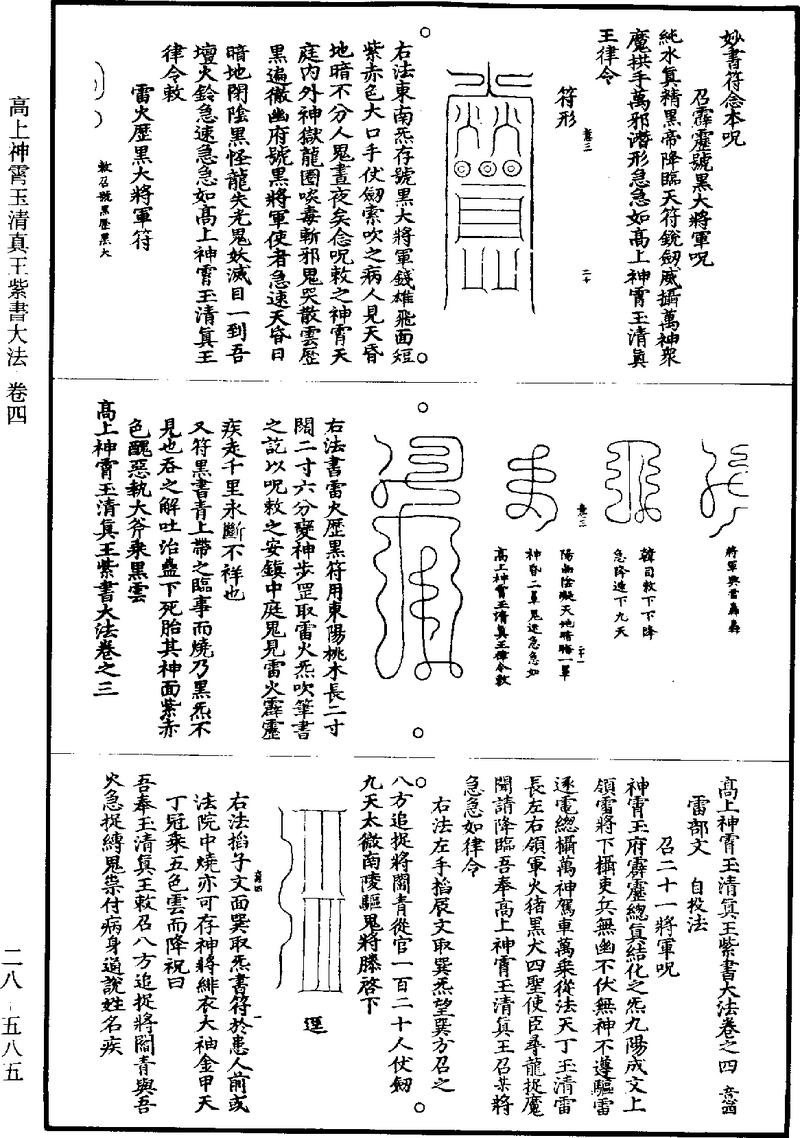 高上神霄玉清真王紫書大法 卷四
二八－五八五
妙書符念本呪
召霹靂號黑大將軍呪
純水真精黑帝降臨天符銳劒威攝萬神眾
魔拱手萬邪潛形急急如高上神霄玉清真
王律令
符形
意三
二十
右法東南炁存號黑大將軍錢雄飛面短
紫赤色大口手仗劒索吹之病人見天昏
地暗不分人鬼晝夜矣念呪敕之神霄天
庭內外神獄龍圈啖毒斬邪鬼哭散雲歷
黑遍徹幽府號黑將軍使者急速天昏日
暗地閉陰黑怪龍失光鬼妖滅目一到吾
壇火鈴急速急急如高上神霄玉清真王
律令敕
雷火歷黑大將軍符
敕召號黑歷黑大
將軍興雷轟轟
韓司敕下下降
急降造下九天
意三
二十一
陽幽陰凝天地暗暗一單
神昏二單鬼迷急急如
高上神霄玉清真王律令敕
右法書雷火歷黑符用東陽桃木長二寸
闊二寸六分變神步罡取雷火炁吹筆書
之訖以呪敕之安鎮中庭鬼見雷火霹靂
疾走千里永斷不祥也
又符黑書青上帶之臨事而燒乃黑炁不
見也吞之解吐治蠱下死胎其神面紫赤
色醜惡執大斧乘黑雲
高上神霄玉清真王紫書大法卷之三
高上神霄玉清真王紫書大法卷之四 意四
雷部文 自投法
召二十一將軍呪
神霄玉府霹靂總真結化之炁九陽成文上
領雷將下攝吏兵無幽不伏無神不遵驅雷
逐電總攝萬神駕車萬乘從法天丁玉清雷
長左右領軍火猪黑犬四聖使臣尋龍捉魔
聞請降臨吾奉高上神霄玉清真王召某將
急急如律令
右法左手掐辰文取巽炁望巽方召之
八方追捉將閻青從官一百二十人仗劒
九天太微南陵驅鬼將滕啓下
逕
右法掐子文面巽取炁書符於患人前或
意四
一
法院中燒亦可存神將緋衣大袖金甲天
丁冠乘五色雲而降祝曰
吾奉玉清真王敕召八方追捉將閻青與吾
火急捉縛鬼祟付病身通說姓名疾